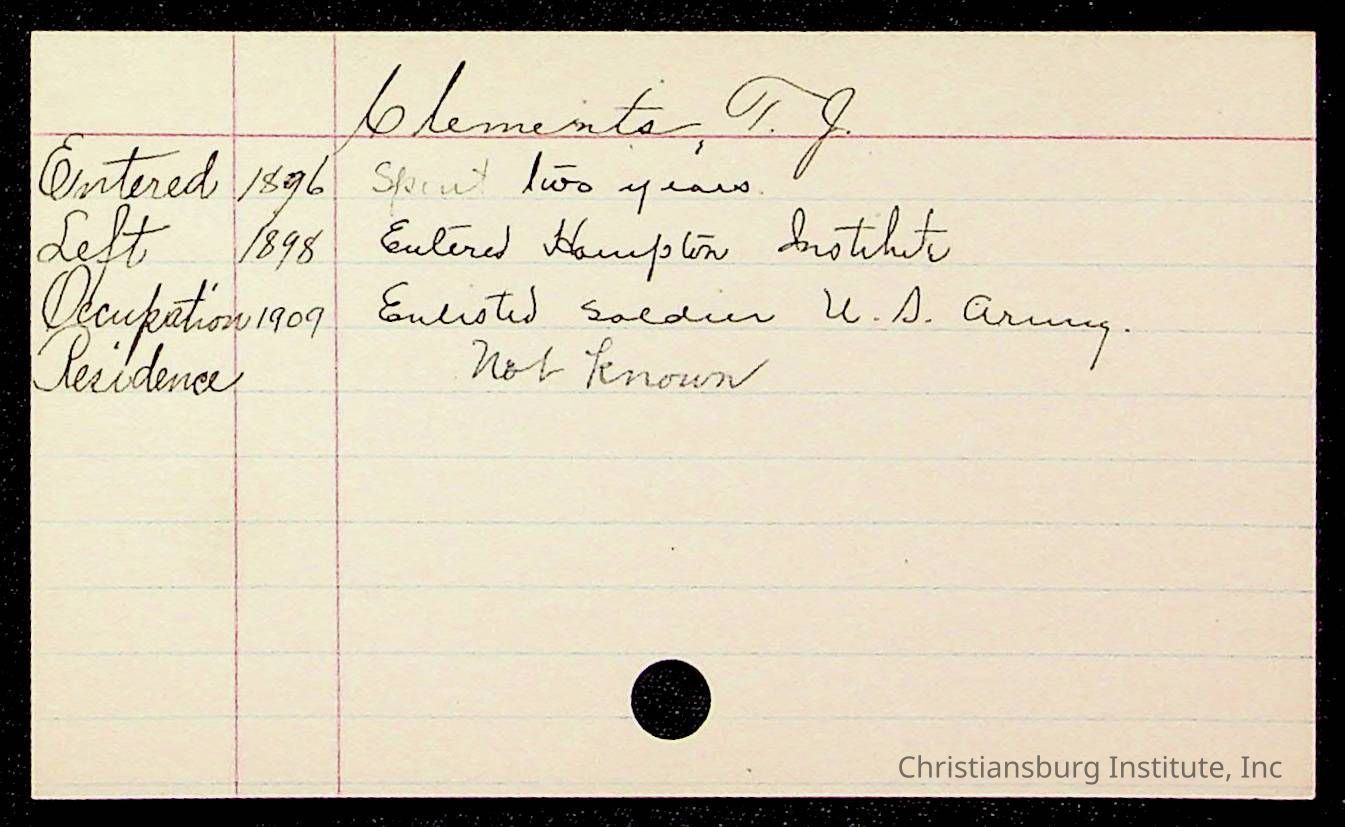 Clements, T. J.
Entered 1896 Spent two years.
Left 1898 Entered Hampton Institute
Occupation 1909 Enlisted Soldier U. S. Army.
Residence Not Known
Christiansburg Institute, Inc